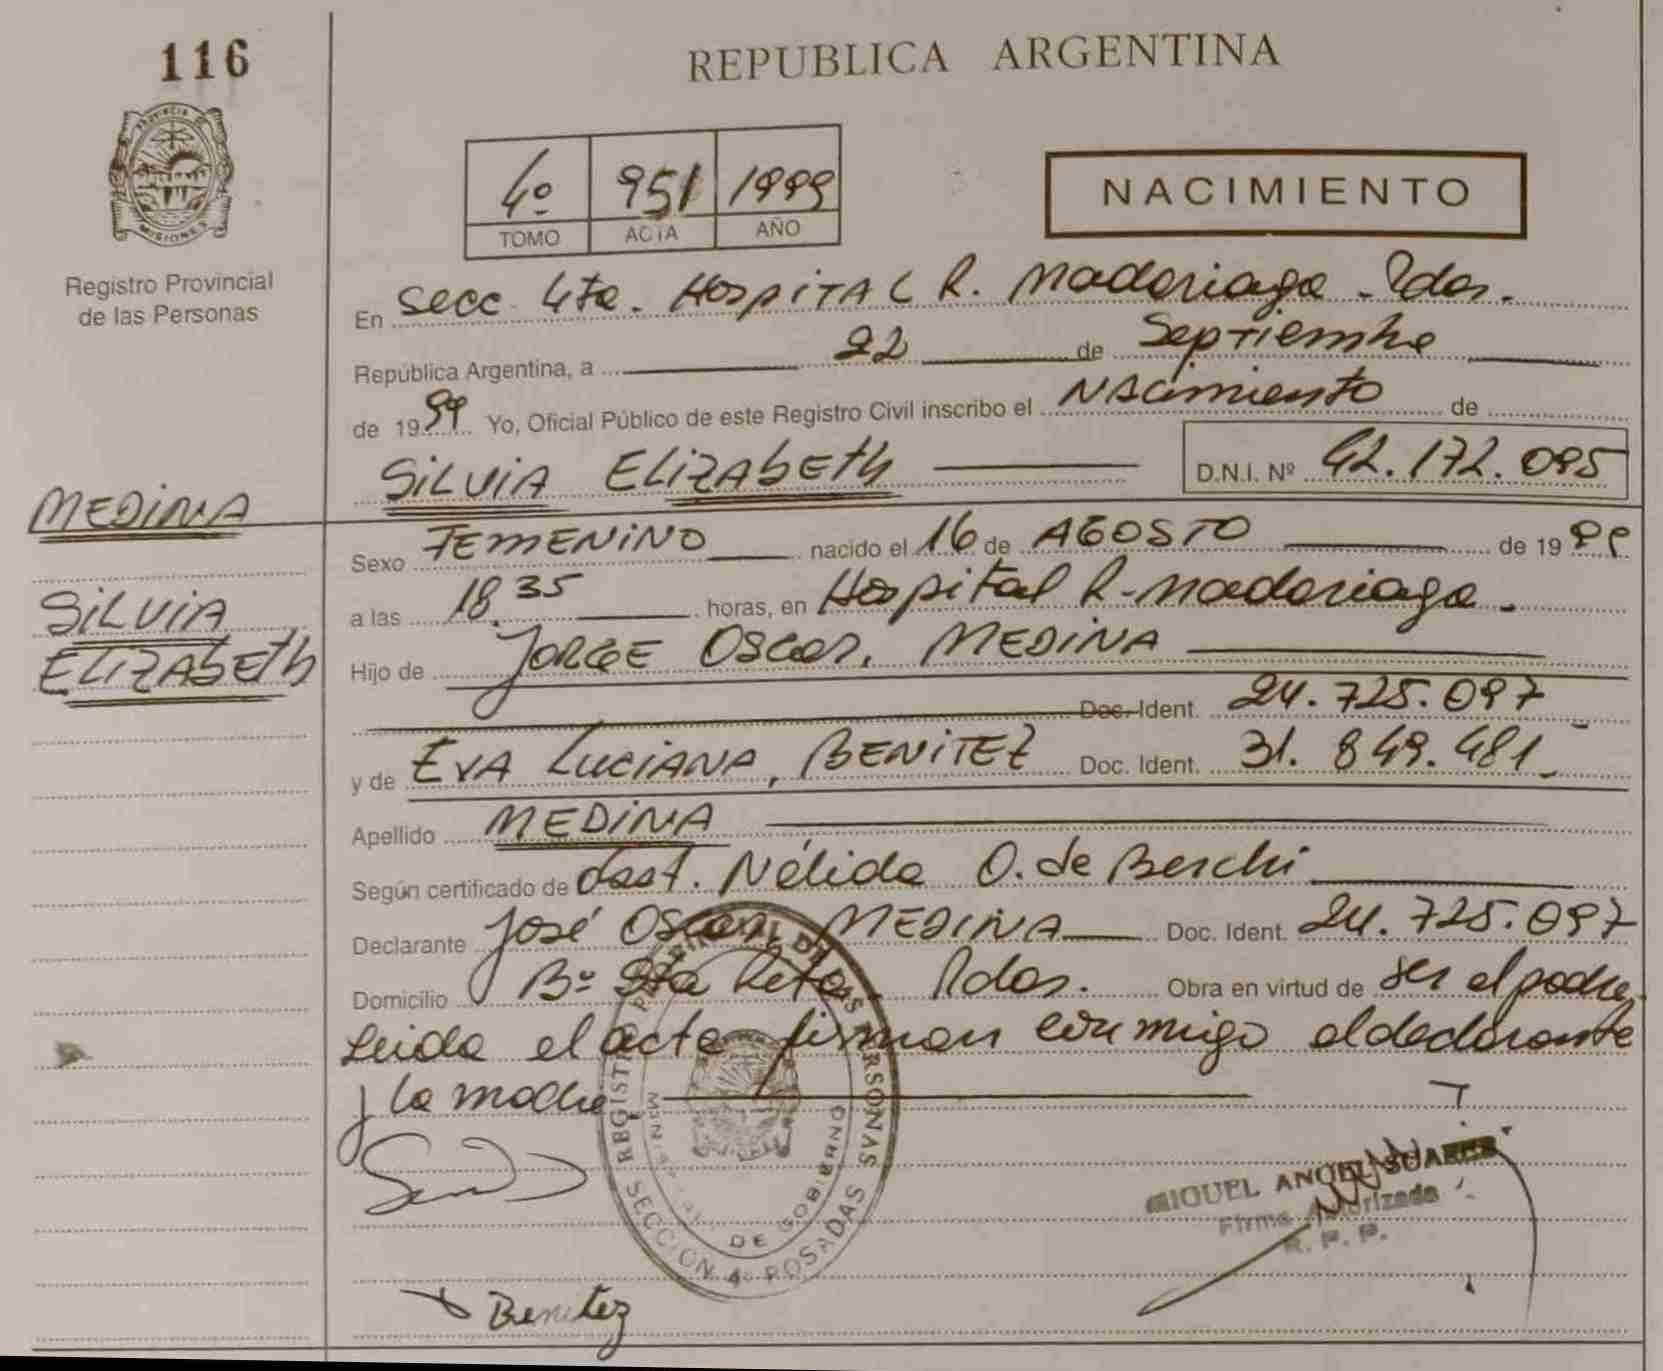 116
REPUBLICA ARGENTINA
PROVINCIA DE
MISIONES
Registro Provincial
de las Personas
4º 951 1999
TOMO ACTA AÑO
NACIMIENTO
En Secc 4ta. Hospital R. Madariaga - Pdas.
República Argentina, a 22 de Septiembre
de 1999 Yo, Oficial Público de este Registro Civil inscribo el Nacimiento de
SiLViA ELizAbEth D.N.I. Nº 42.172.095
MEDiNA
SiLViA
ELIZAbEth
Sexo FEMENiNO nacido el 16 de AGOSTO de 1999
a las 18.35 horas, en Hospital R. Madariaga.
Hijo de JORGE OSCAR, MEDINA
Doc. Ident. 24.725.097
y de EVA LUCIANA, BENiTEZ Doc. Ident. 31.849.481
Apellido MEDiNA
Según certificado de Obst. Nélida O. de Berchi
Declarante José Oscar, MEDINA Doc. Ident. 24.725.097
Domicilio Bº Sta Rita. Pdas. Obra en virtud de ser el padre.
Leida el acta firman conmigo el declarante
y la madre
REGISTRO PROVINCIAL DE LAS PERSONAS
DE GOBIERNO
SECCION 4º POSADAS
MIGUEL ANGEL SUAREZ
Firma Autorizada
R. P. P.
Benitez